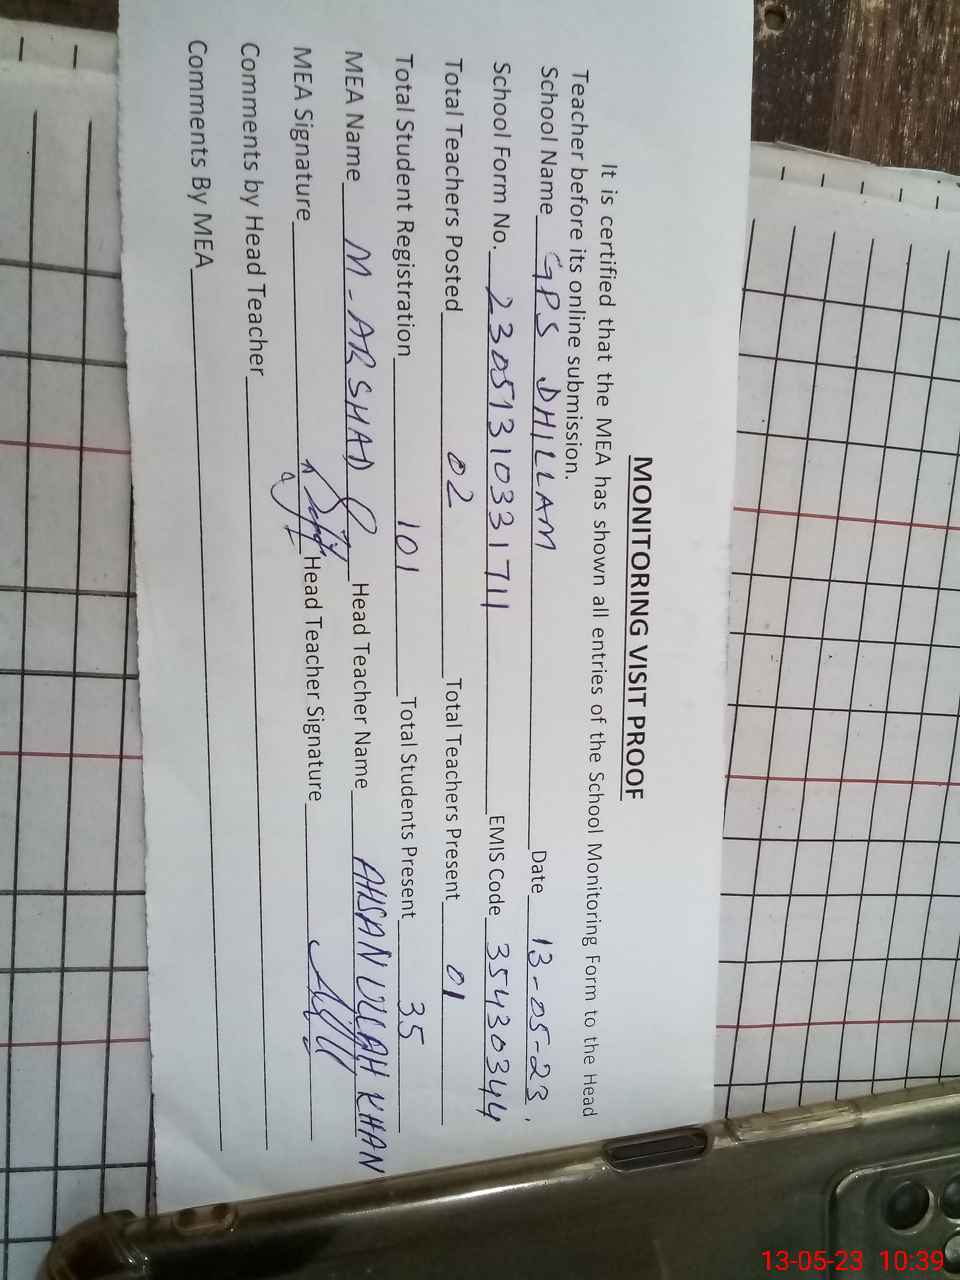 MONITORING VISIT PROOF
It is certified that the MEA has shown all entries of the School Monitoring Form to the Head
Teacher before its online submission.
School Name GPS DHILLAM Date 13-05-23.
School Form No. 23051310331711 EMIS Code 35430344
Total Teachers Posted 02 Total Teachers Present 01
Total Student Registration 101 Total Students Present 35
MEA Name M-ARSHAD Head Teacher Name AHSAN ULLAH KHAN
MEA Signature Head Teacher Signature
Comments by Head Teacher
Comments By MEA
13-05-23 10:39